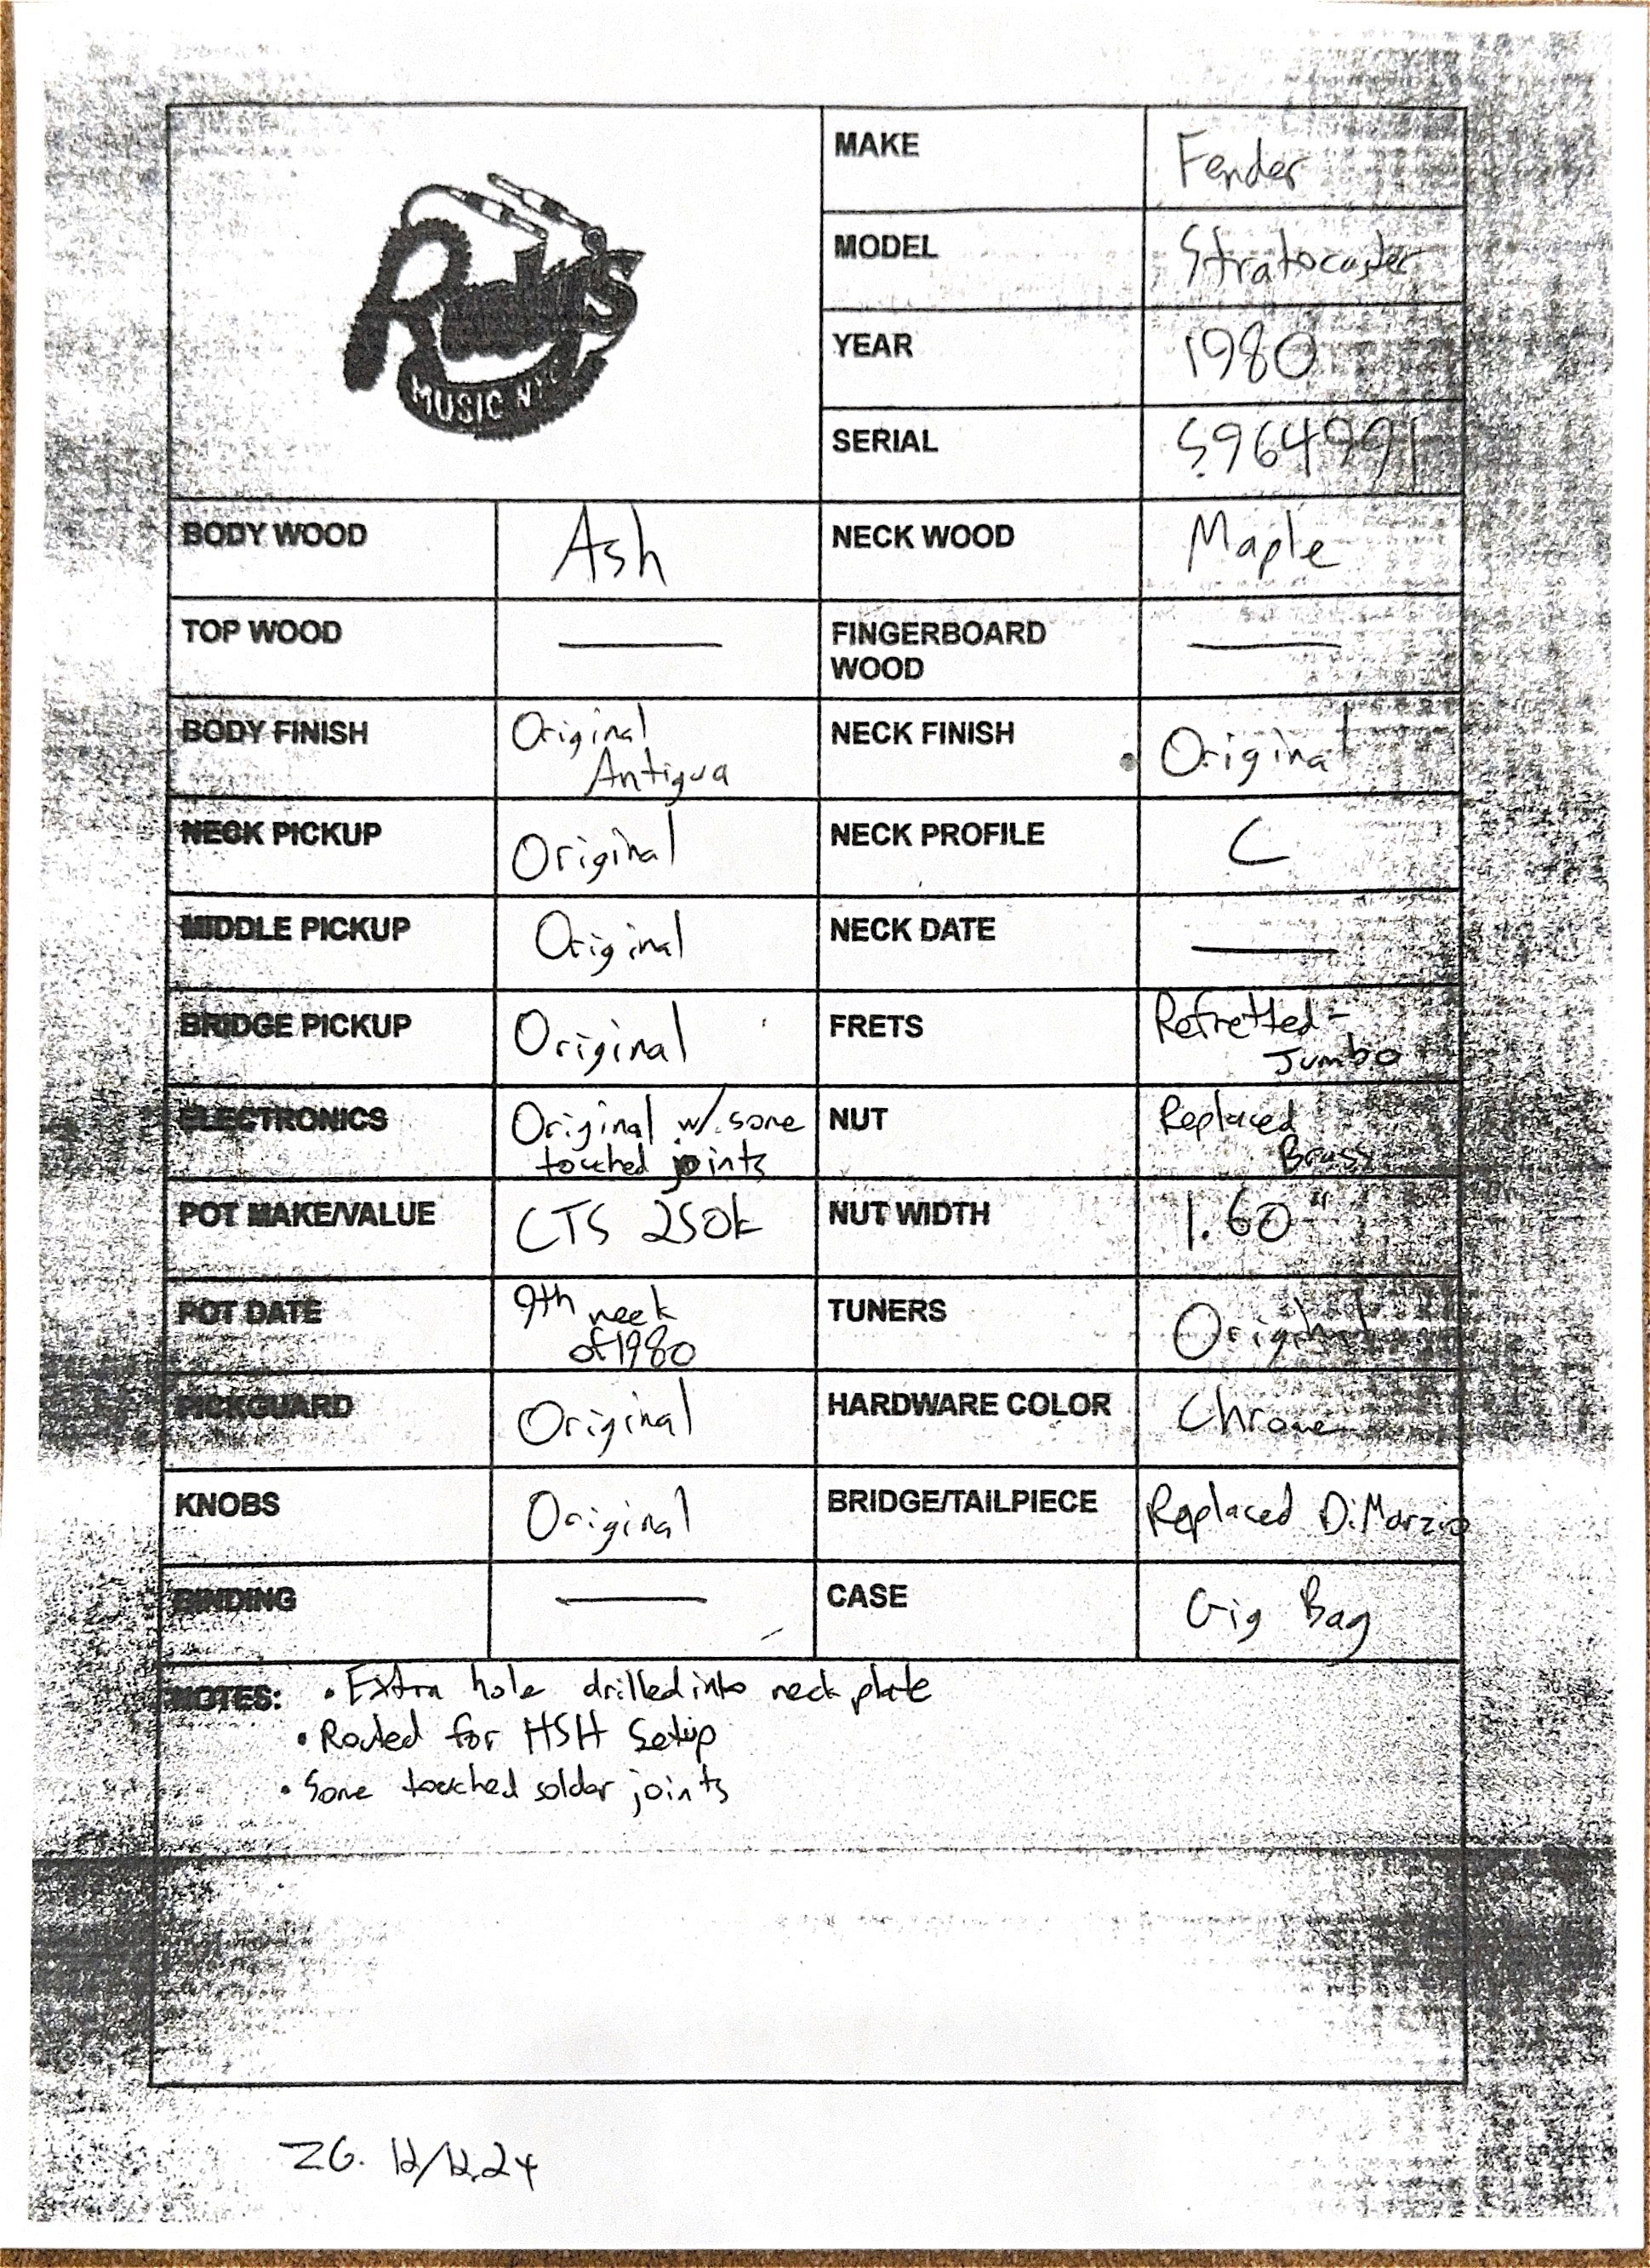 Rudy's
MUSIC NYC
MAKE Fender
MODEL Stratocaster
YEAR 1980
SERIAL S964991
BODY WOOD Ash NECK WOOD Maple
TOP WOOD — FINGERBOARD
WOOD —
BODY FINISH Original
Antigua
NECK FINISH Original
NECK PICKUP Original NECK PROFILE C
MIDDLE PICKUP Original NECK DATE —
BRIDGE PICKUP Original FRETS Refretted -
Jumbo
ELECTRONICS Original w/ some
touched joints
NUT Replaced
Brass
POT MAKE/VALUE CTS 250k NUT WIDTH 1.60"
POT DATE 9th week
of 1980
TUNERS Original
PICKGUARD Original HARDWARE COLOR Chrome
KNOBS Original BRIDGE/TAILPIECE Replaced DiMarzio
BINDING — CASE Gig Bag
NOTES: • Extra hole drilled into neck plate
• Routed for HSH Setup
• Some touched solder joints
ZG. 12/12.24